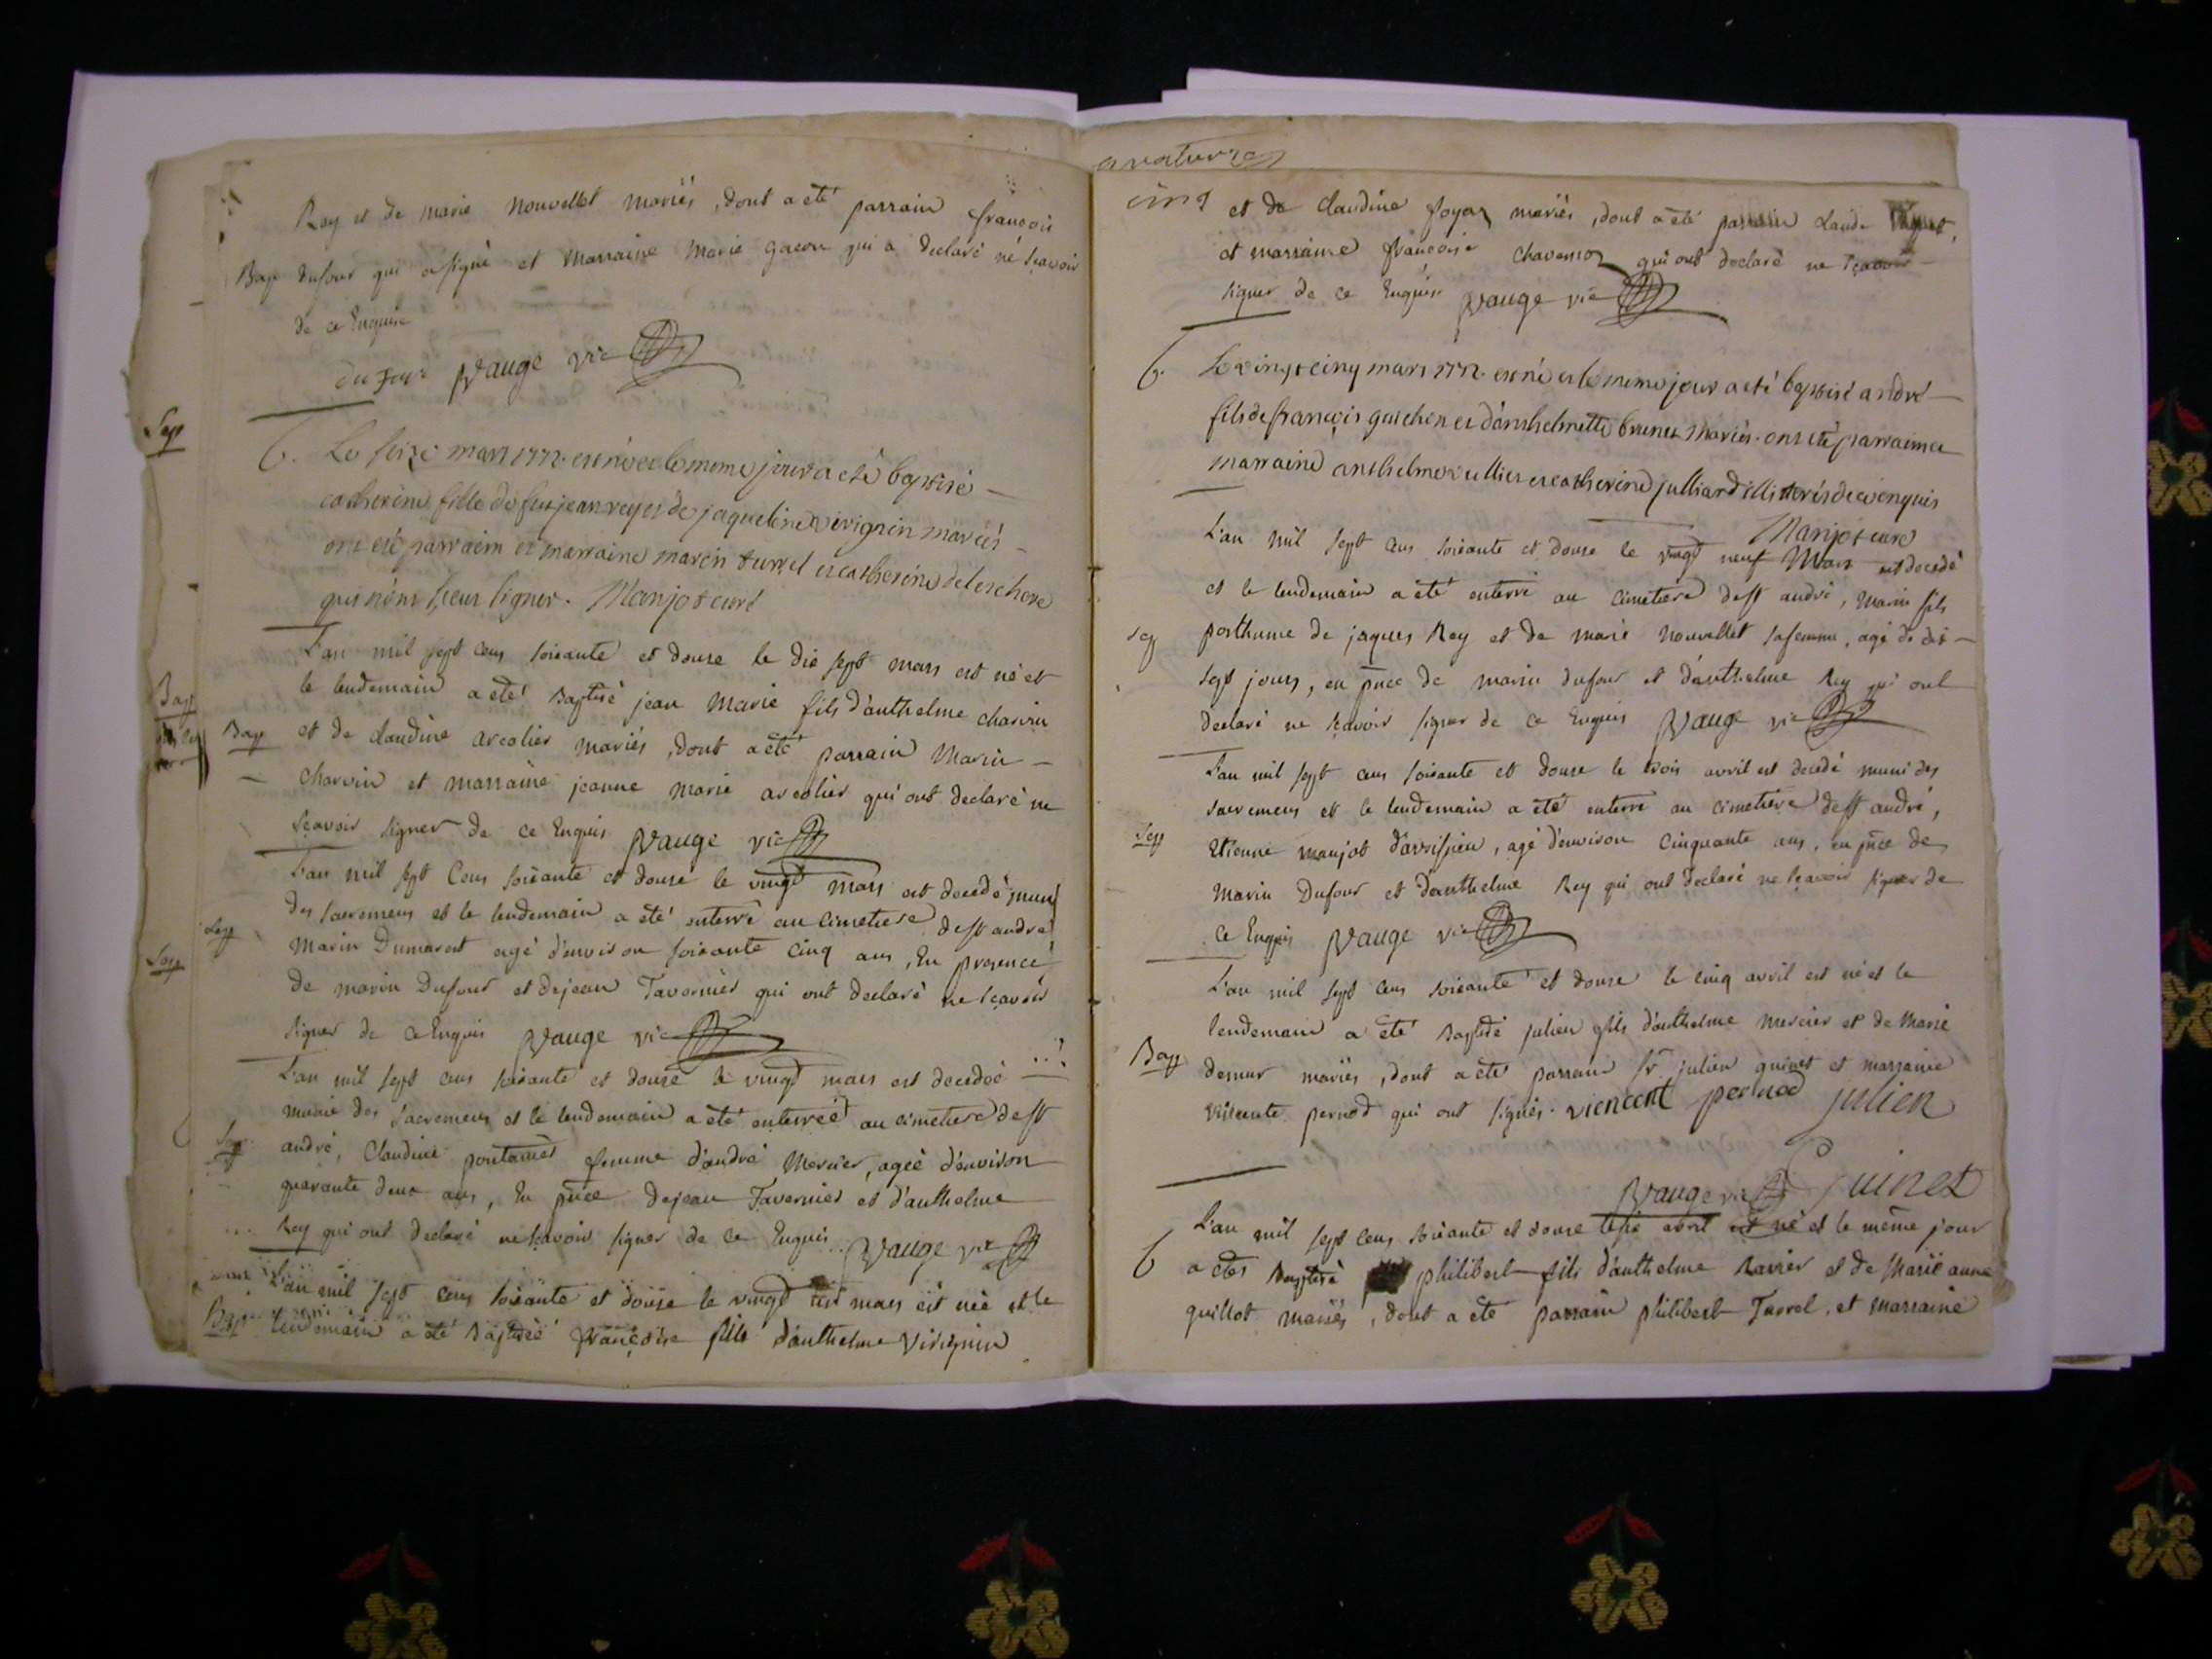 Rey et de marie nouvellet mariés, dont a été parrain françois
Bap dufour qui a signé et marraine Marie gacon qui a declaré né sçavoir
de ce Enquise
dufour Vauge vic
Sep
b. Le seize mars 1772. est née et le meme jour a eté baptisé
catherine fille de feu jean rey et de jaqueline virignin mariés
ont eté parrain et marraine marin turrel et catherine deleschere
qui n'ont sceu signer. Manjot curé
L'an mil sept cens soixante et douse le dix sept mars est né et
le lendemain a été Baptisé jean Marie fils d'anthelme charvin
Bap
Bap et de claudine arcolier mariés, dont a été parrain Marin
charvin et marraine jeanne marie arcolier qui ont declaré ne
sçavoir signer de ce Enquis Vauge vic
L'an mil sept Cens soixante et douse le vingt mars est decedé muni
des sacremens et le lendemain a été enterré au cimetiere de st andré
Sep
Marin Dumarest agé d'environ soixante cinq ans, En presence
Sep
de marin Dufour et de jean Tavernier qui ont declaré ne sçavoir
signer de ce Enquis Vauge vic
L'an mil sept cens soixante et douse le vingt mars est decedée
munie des sacremens et le lendemain a été enterrée au cimetiere de st
Sep andré, Claudine pontanier femme d'andré Mercier, ageé d'environ
quarante deux ans, En pnce de jean Tavernier et d'anthelme
Rey qui ont declaré ne sçavoir signer de ce Enquis Vauge vic
L'an mil sept cens soixante et douse le vingt mars est née et le
Bap lendemain a été Baptiseé françoise fille d'anthelme Virignin
cinq et de claudine mariés, dont a été parrain Claude
et marraine françoise qui ont declaré ne sçavoir
signer de ce Enquis Vauge vic
b. Le vingt cinq mars 1772. est né et le meme jour a eté baptisé andré
fils de françois guichon et d'anthelmette brunet mariés. ont eté parrain et
marraine anthelme vullier et catherine julliard illiterés de ce enquis
Manjot curé
L'an mil sept cens soixante et douse le vingt neuf Mars est decedé
et le lendemain a été enterré au cimetiere de st andré, Marin fils
sep posthume de jaques Rey et de marie nouvellet sa femme, agé de dix
sept jours, en pnce de marin dufour et d'anthelme Rey qui ont
declaré ne sçavoir signer de ce Enquis Vauge vic
L'an mil sept cens soixante et douse le trois avril est decedé muni des
sacremens et le lendemain a été enterré au cimetiere de st andré,
Sep Etienne manjot d'arrissieu, agé d'environ cinquante ans, en pnce de
Marin Dufour et d'anthelme Rey qui ont declaré ne sçavoir signer de
ce Enquis Vauge vic
L'an mil sept cens soixante et douse le cinq avril est né et le
lendemain a été Baptisé julien fils d'anthelme mercier et de Marie
Bap demur mariés, dont a été parrain sr. julien guinet et marraine
vincente pernod qui ont signés. viencent pernod julien
Guinet
Vauge vic
L'an mil sept cens soixante et douse le six avril est né et le même jour
b a eté Baptisé philibert fils d'anthelme Ravier et de Marie anne
guillot mariés, dont a été parrain philibert Turrel, et marraine